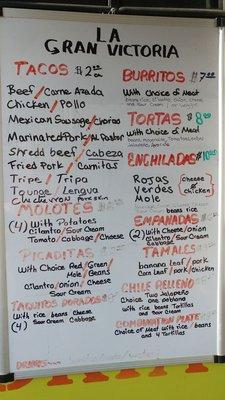 LA
GRAN VICTORIA
TACOS $2
Beef/Carne Asada
Chicken/Pollo
Mexican Sausage/Chorizo
Marinated Pork/Al Pastor
Shredd beef/Cabeza
Fried Pork/Carnitas
Tripe/Tripa
Tounge/Lengua
Chicharron PORK SKIN
MOLOTES
(4) With Potatoes
Cilantro/Sour Cream
Tomato/Cabbage/Cheese
PICADITAS
With Choice Red/Green/
Mole/Beans
Cilantro/onion/Cheese
Sour Cream
TAQUITOS DORADOS
With rice beans Cheese
(4) Sour Cream Cabbage
DRINKS
BURRITOS $7
With Choice of Meat
TORTAS $8
With Choice of Meat
ENCHILADAS $10
Rojas
Verdes
Mole
Cheese
or
chicken
beans rice
EMPANADAS
(2) With Cheese/Onion
Cilantro/Sour Cream
Cabbage
TAMALES
banana leaf/pork
Corn leaf/pork/Chicken
CHILE RELLENO
Two Jalapeño
Choice one poblano
with rice beans Tortillas
and Sour Cream
COMBINATION PLATE
Choice of Meat with rice/beans
and 4 Tortillas